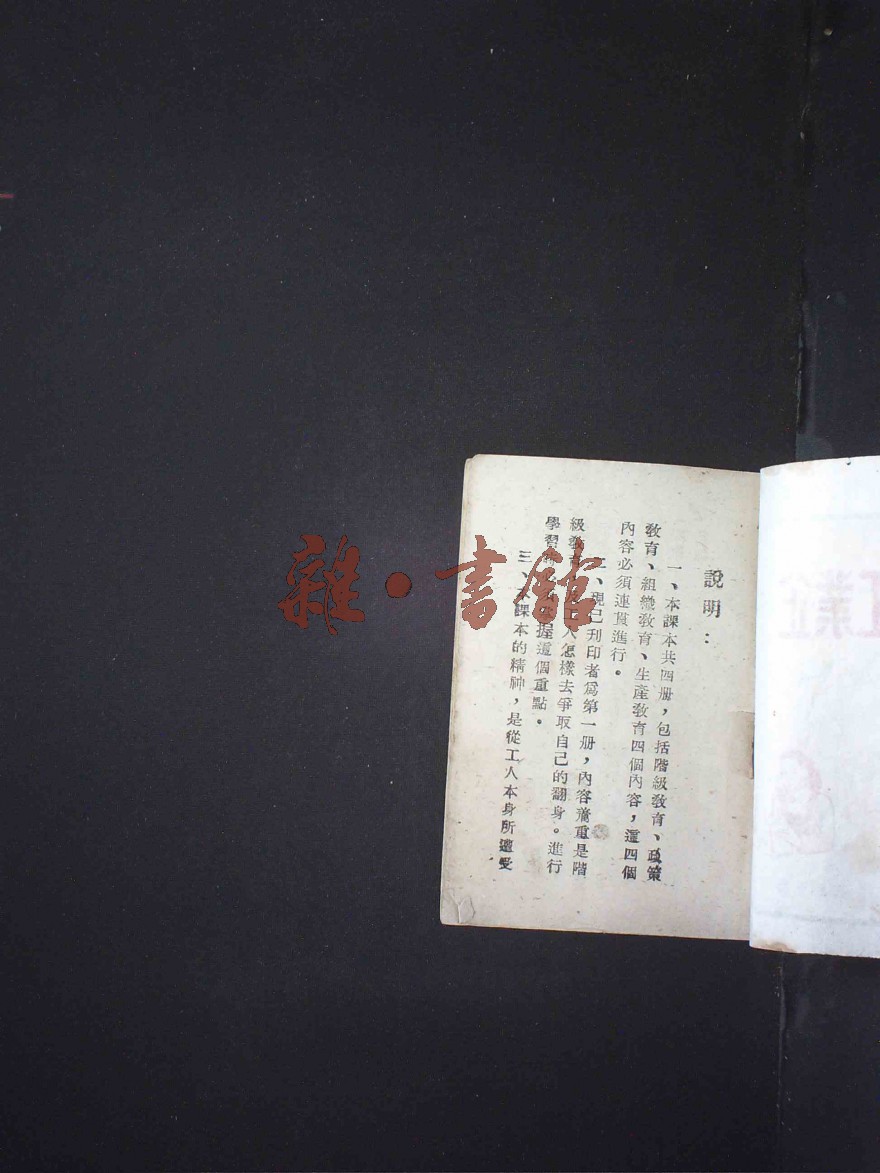 說明：
一、本課本共四册，包括階級敎育、政策
敎育、組織敎育、生產敎育四個內容，這四個
內容必須連貫進行。
二、現已刋印者爲第一册，內容着重是階
級敎 工人怎樣去爭取自己的翻身。進行
學習 握這個重點。
三、本課本的精神，是從工人本身所遭受
雜·書館
工業企